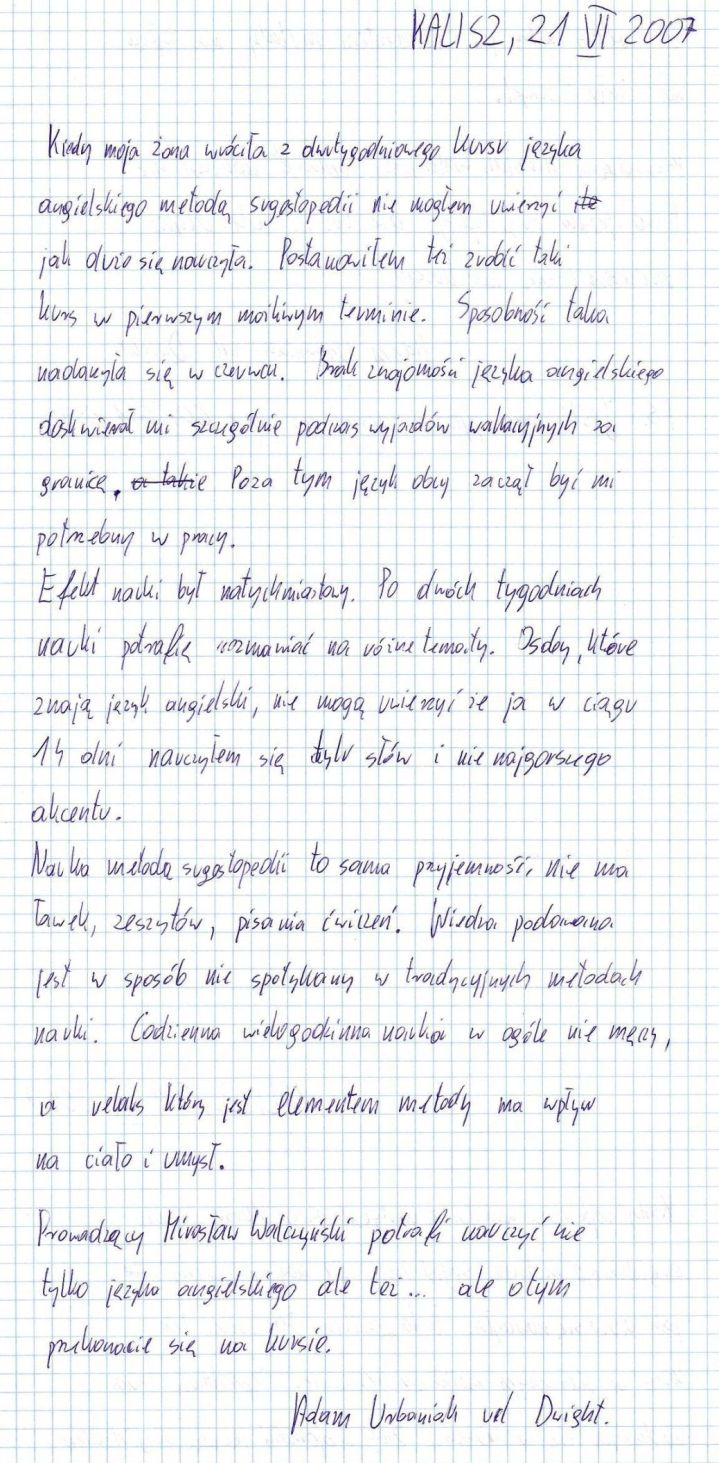 KALISZ, 21 VI 2007
Kiedy moja żona wróciła z dwutygodniowego kursu języka
angielskiego metodą sugestopedii nie mogłem uwierzyć
jak dużo się nauczyła. Postanowiłem też zrobić taki
kurs w pierwszym możliwym terminie. Sposobność taka
nadarzyła się w czerwcu. Brak znajomości języka angielskiego
doskwierał mi szczególnie podczas wyjazdów wakacyjnych za
granicę. a także Poza tym język obcy zaczął być mi
potrzebny w pracy.
Efekt nauki był natychmiastowy. Po dwóch tygodniach
nauki potrafię rozmawiać na różne tematy. Osoby, które
znają język angielski, nie mogą uwierzyć że ja w ciągu
14 dni nauczyłem się tylu słów i nie najgorszego
akcentu.
Nauka metodą sugestopedii to sama przyjemność, nie ma
ławek, zeszytów, pisania ćwiczeń. Wiedza podawana
jest w sposób nie spotykany w tradycyjnych metodach
nauki. Codzienna wielogodzinna nauka w ogóle nie męczy,
a relaks który jest elementem metody ma wpływ
na ciało i umysł.
Prowadzący Mirosław Walczyński potrafi nauczyć nie
tylko języka angielskiego ale też... ale o tym
przekonacie się na kursie.
Adam Urbaniak vel Dwight.